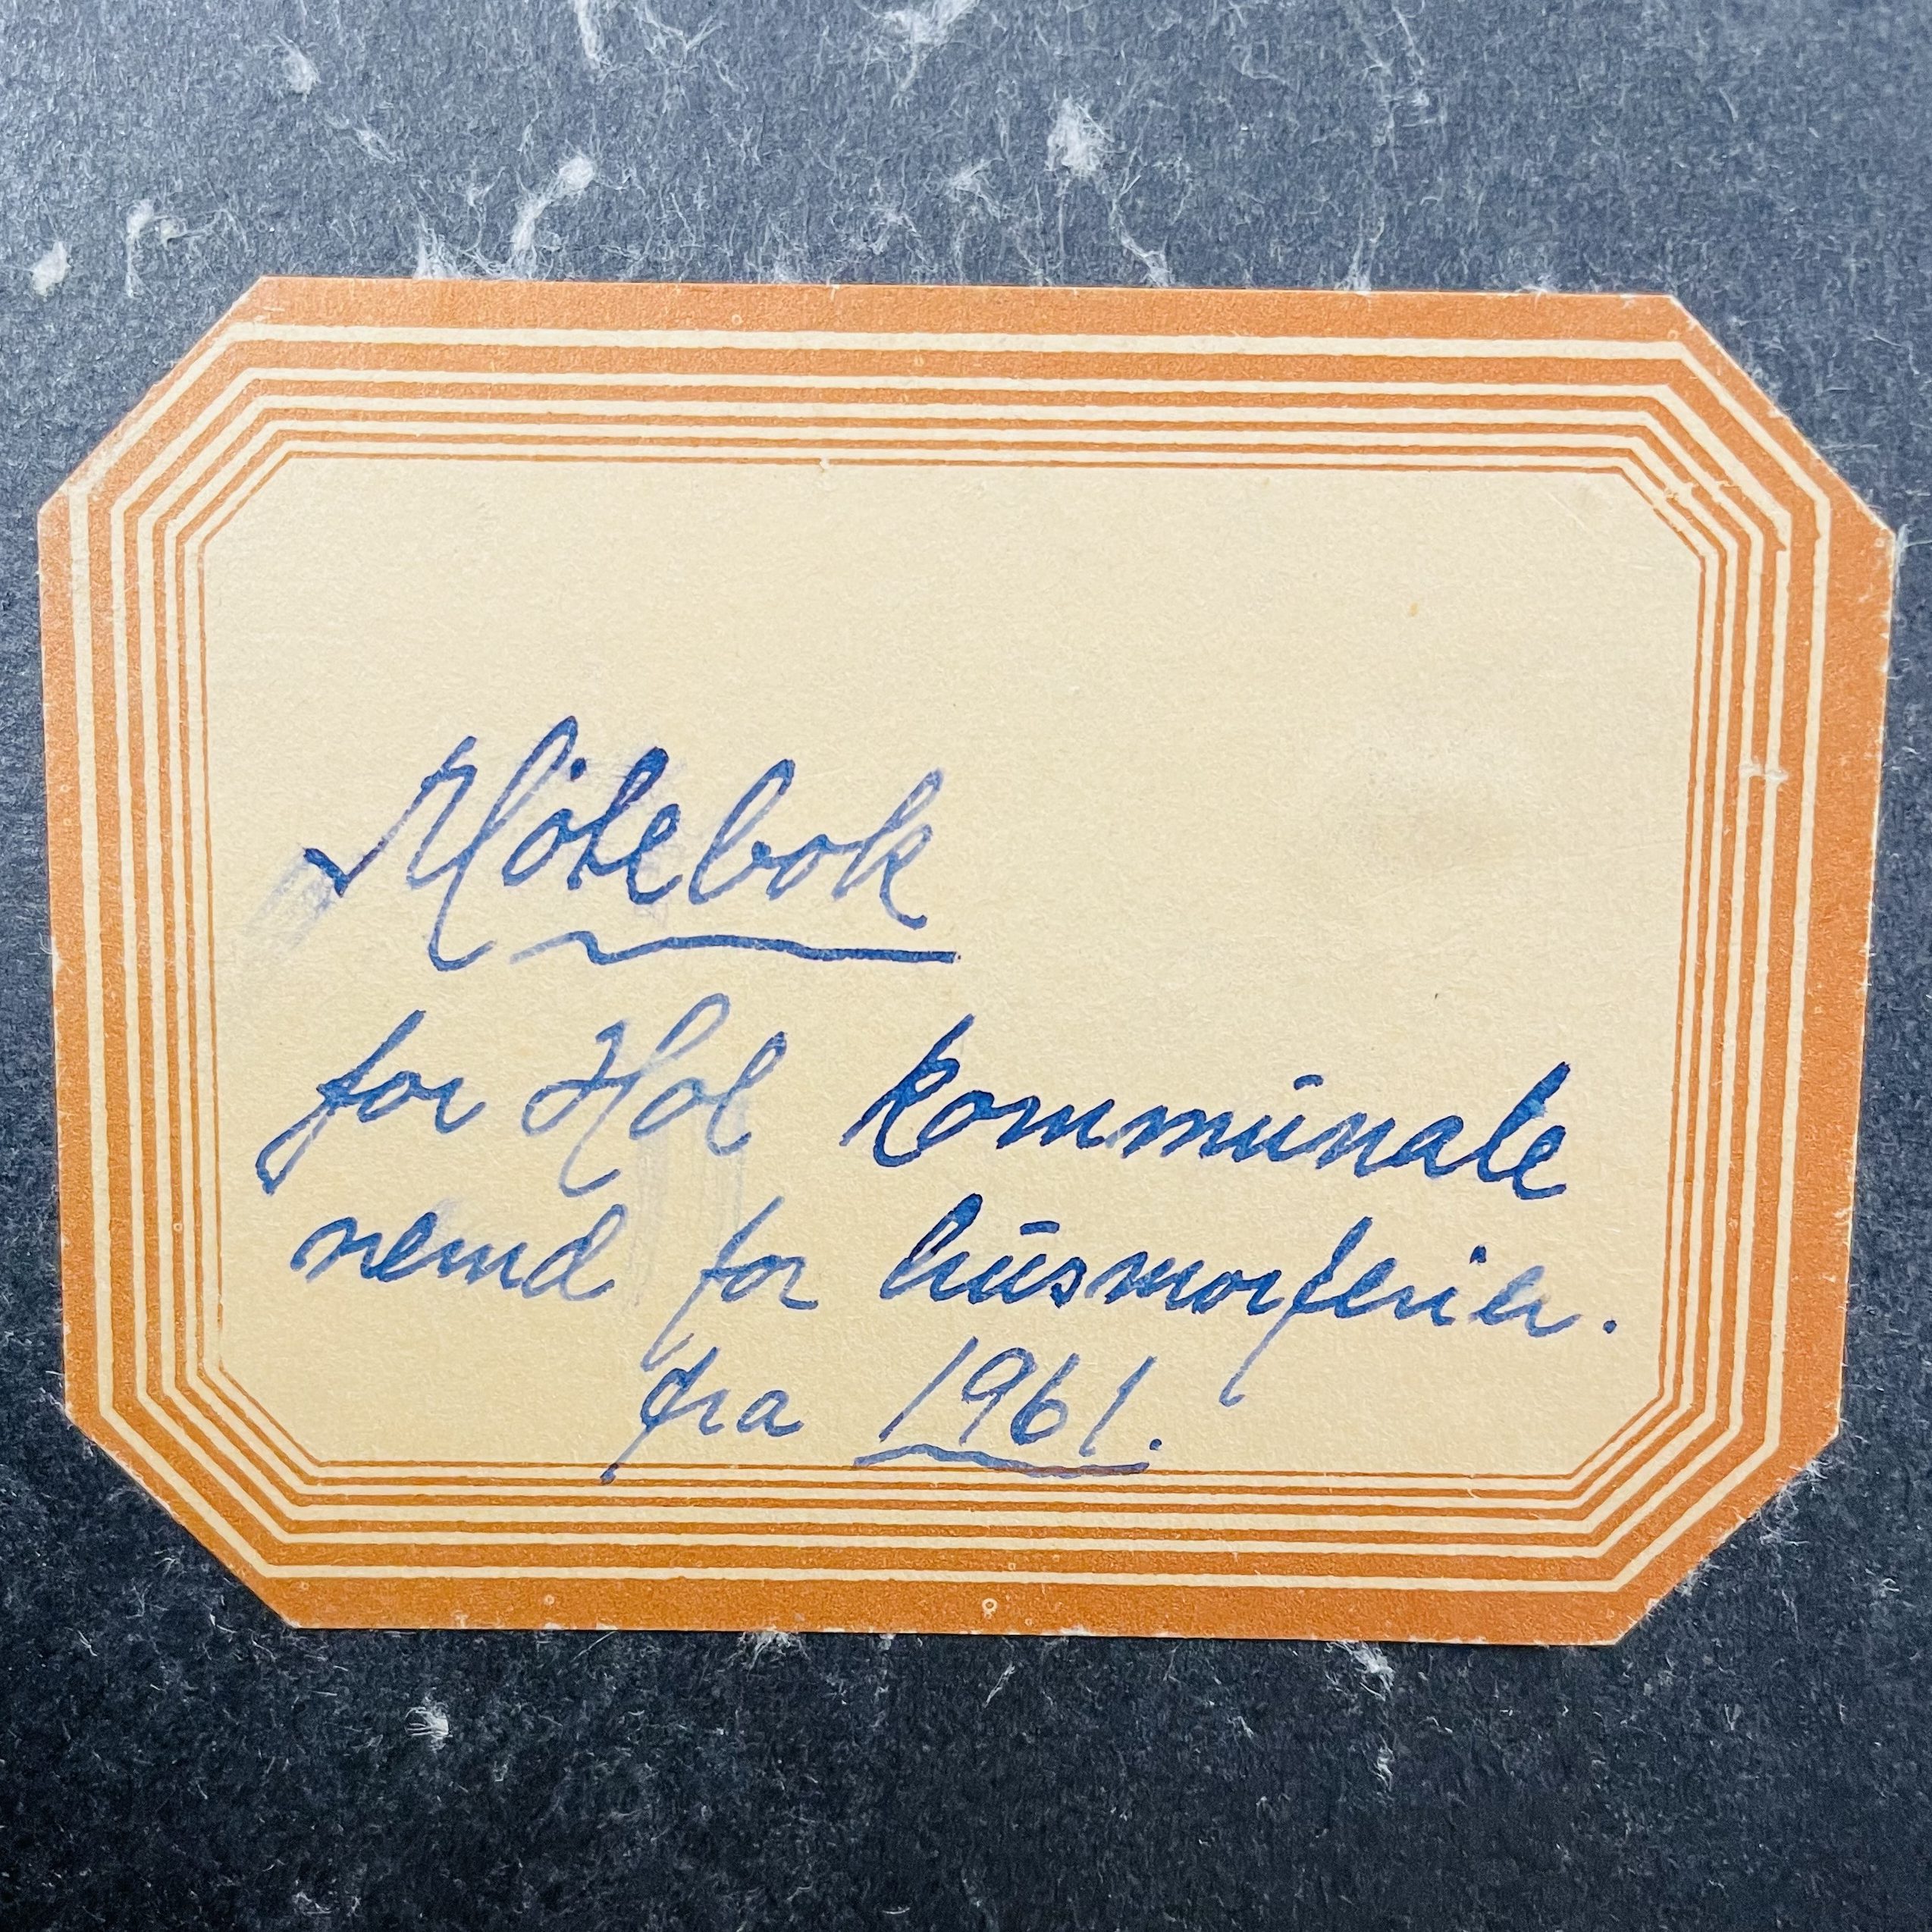 Mötebok
for Hol kommunale
nemd for husmorferier.
fra 1961.